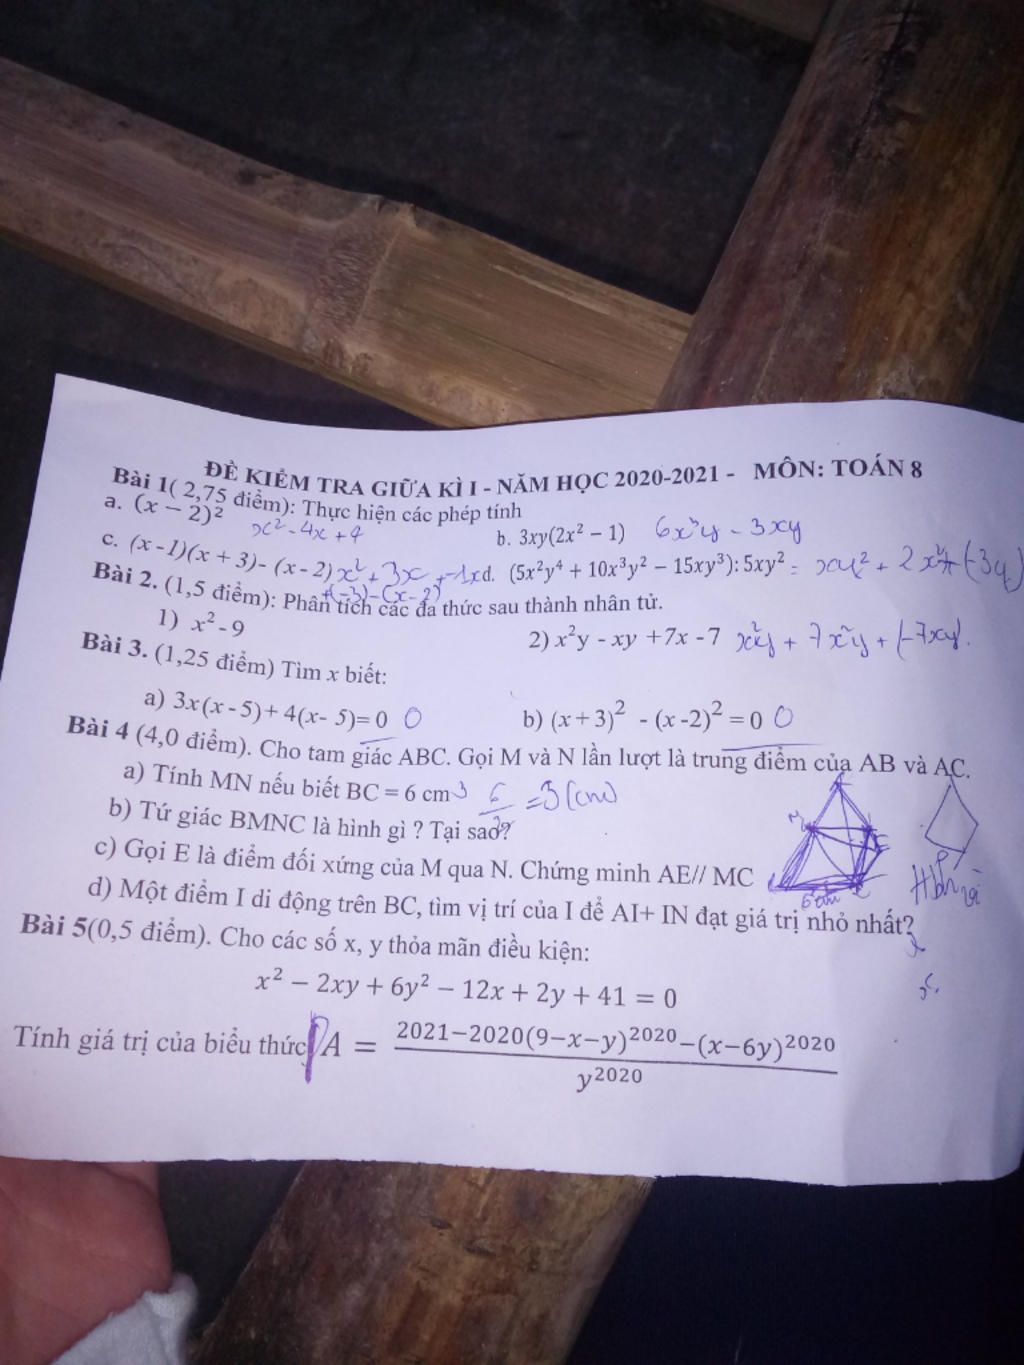 ĐỀ KIỂM TRA GIỮA KÌ I - NĂM HỌC 2020-2021 - MÔN: TOÁN 8
Bài 1( 2,75 điểm): Thực hiện các phép tính
a. (x − 2)² x² - 4x + 4
b. 3xy(2x² − 1) 6x³y - 3xy
c. (x -1)(x + 3)- (x - 2) x² + 3x + -1x
+(-3)-(x-2)
d. (5x²y⁴ + 10x³y² − 15xy³): 5xy² =
Bài 2. (1,5 điểm): Phân tích các đa thức sau thành nhân tử.
1) x² - 9
2) x²y - xy +7x -7 x²y + 7x²y + (-7xy).
Bài 3. (1,25 điểm) Tìm x biết:
a) 3x(x - 5)+ 4(x- 5)= 0 0
b) (x + 3)² - (x -2)² = 0 0
Bài 4 (4,0 điểm). Cho tam giác ABC. Gọi M và N lần lượt là trung điểm của AB và AC.
a) Tính MN nếu biết BC = 6 cm 3 6/2 = 3 (cm)
b) Tứ giác BMNC là hình gì ? Tại sao?
c) Gọi E là điểm đối xứng của M qua N. Chứng minh AE// MC
d) Một điểm I di động trên BC, tìm vị trí của I để AI+ IN đạt giá trị nhỏ nhất?
M
6cm
Bài 5(0,5 điểm). Cho các số x, y thỏa mãn điều kiện:
x² − 2xy + 6y² − 12x + 2y + 41 = 0
Tính giá trị của biểu thức A = 2021−2020(9−x−y)²⁰²⁰−(x−6y)²⁰²⁰ / y²⁰²⁰